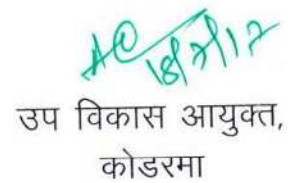 18/7/17
उप विकास आयुक्त,
कोडरमा